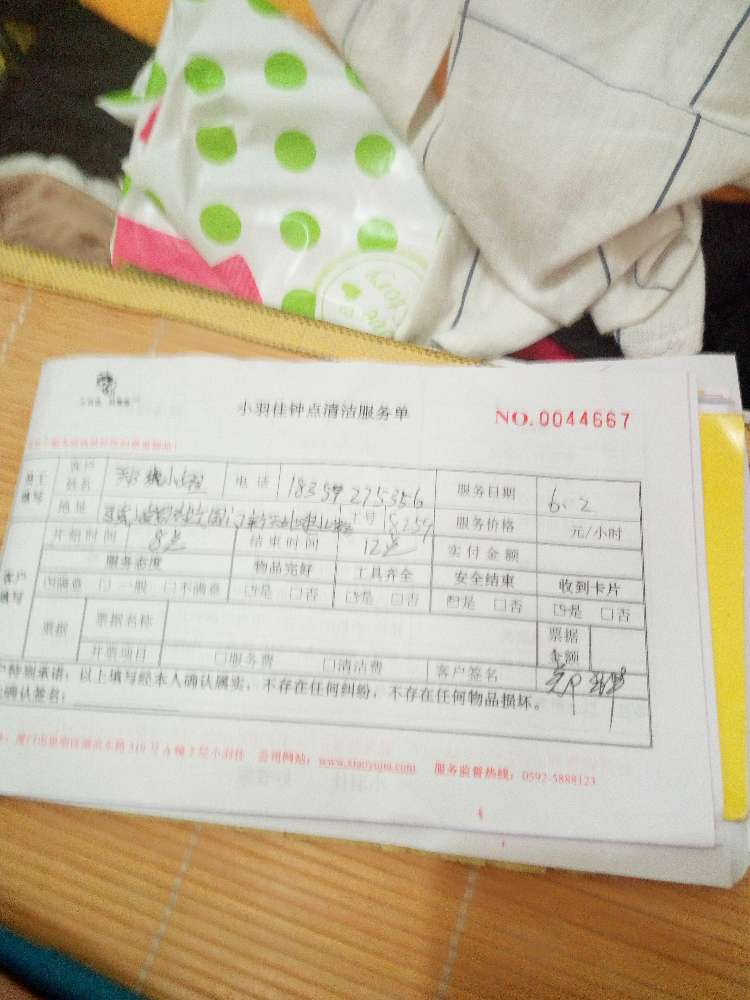 小羽佳钟点清洁服务单
NO.0044667
员工填写 客户姓名 小姐 电话 18359275356 服务日期 6.2
地址 8259 服务价格 元/小时
客户填写 开始时间 8点 结束时间 12点 实付金额
服务态度 物品完好 工具齐全 安全结束 收到卡片
☑满意 □一般 □不满意 ☑是 □否 ☑是 □否 ☑是 □否 ☑是 □否
票据 票据名称 票据金额
开票项目 □服务费 □清洁费 客户签名
户特别承诺:以上填写经本人确认属实,不存在任何纠纷,不存在任何物品损坏。
确认签名:
319号A幢2层小羽佳 公司网站:www.xiaoyujia.com 服务监督热线:0592-5888123